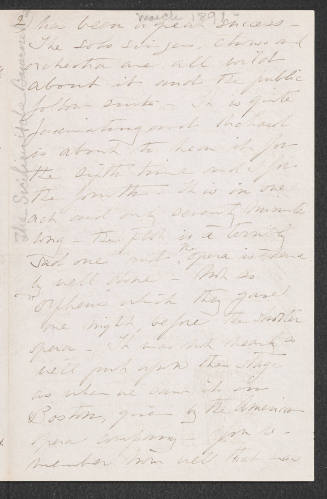 2) March 1891
has been a great success -
The solo singers, chorus and
orchestra are all wild
about it and the public
follow suit - It is quite
fascinating and Richard
is about to hear it for
the sixth time and I for
the fourth - It is in one
act and only seventy minutes
long - the plot is a terribly
sad one and the opera is
well done - Not so
"Orpheus" which they gave
one night, before the shorter
opera - It was not nearly so
well put upon the stage
as when we saw it in
Boston, given by the American
opera company - you re-
member how well that was